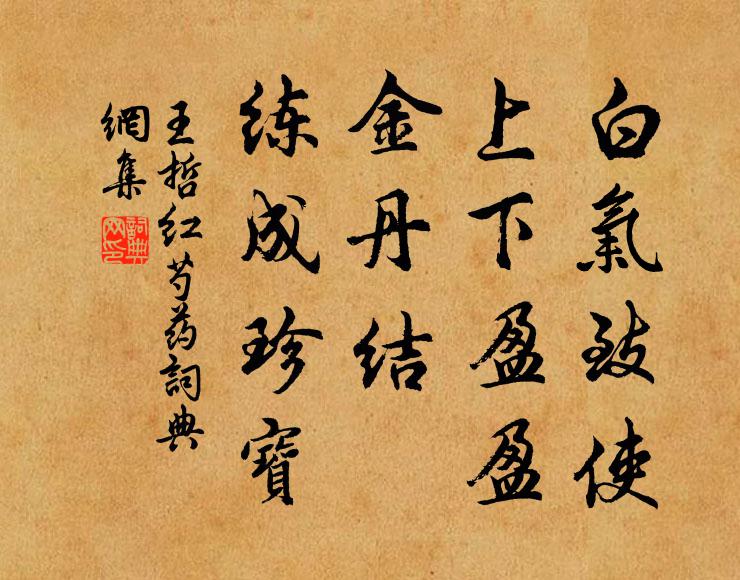 白氣致使
上下盈盈
金丹结
练成珍寶
王哲红芍药詞典
網集
詞典
网印